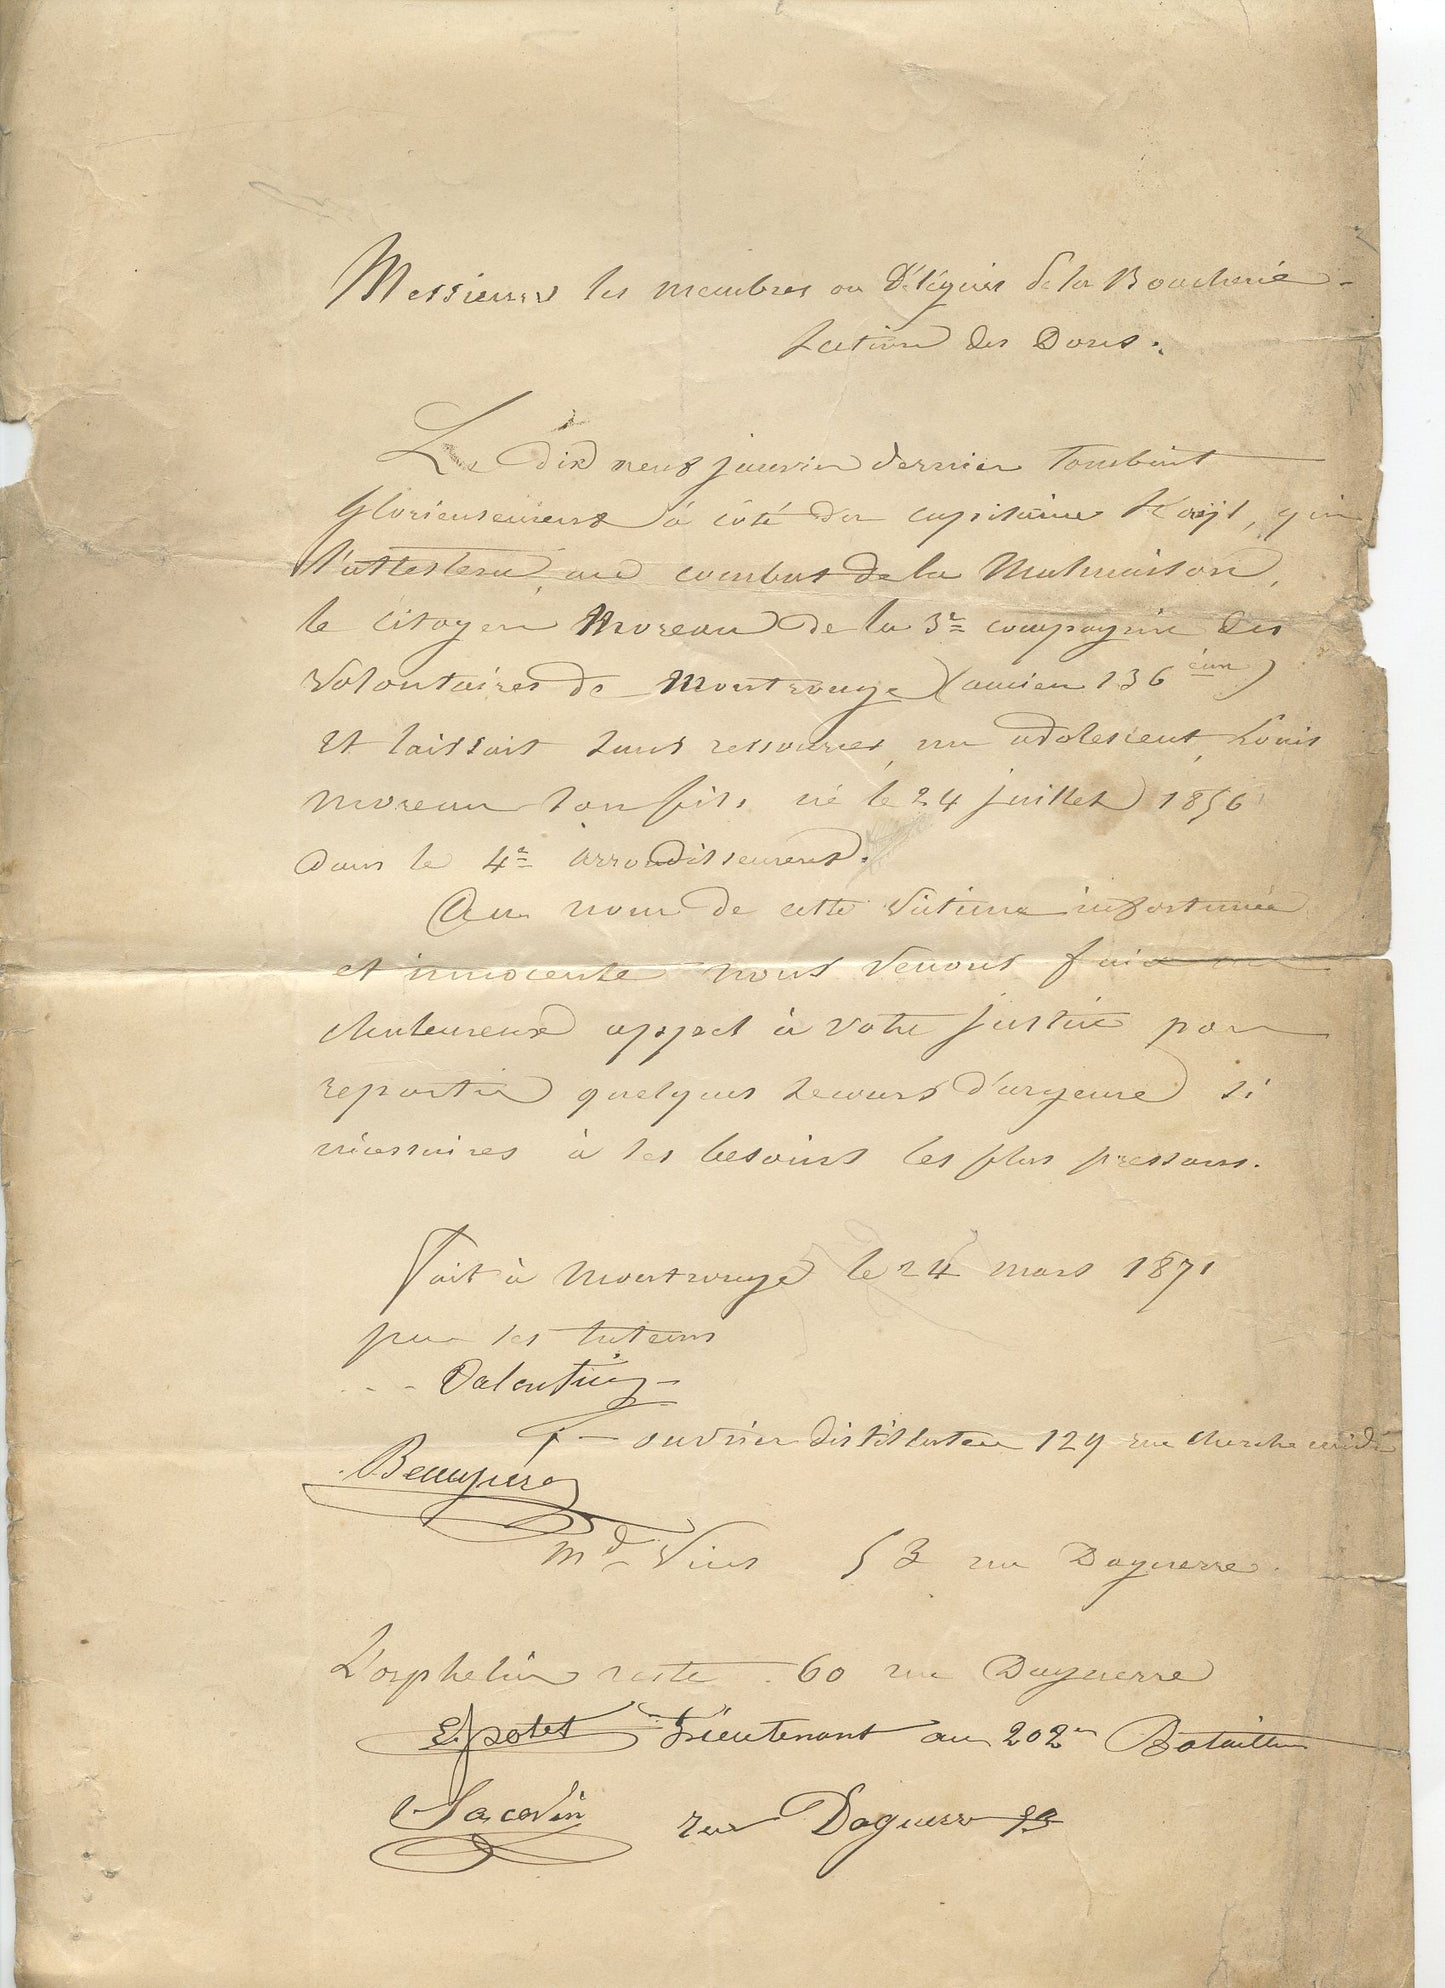 Messieurs les membres ou Délégués de la Boucherie -
Section des Dons.
Le dix neuf janvier dernier tombait
glorieusement à côté du capitaine qui
l'attestera, au combat de la Malmaison,
le citoyen Moreau de la 3e compagnie des
volontaires de Montrouge (ancien 136 ème)
et laissait sans ressources, un adolescent, Louis
Moreau son fils, né le 24 juillet 1856
dans le 4e arrondissement.
Au nom de cette victime infortunée
et innocente nous venons faire un
chaleureux appel à votre justice pour
repartir quelques secours d'argent si
nécessaires à ses besoins les plus pressans.
Fait à Montrouge le 24 mars 1871
pour les tuteurs
Valentin
ouvrier distillateur 129 rue cherche midi
Beaupère
Md Vins 53 rue Daguerre.
L'orphelin reste 60 rue Daguerre
E. potet Lieutenant au 202e Bataillon
rue Daguerre 93